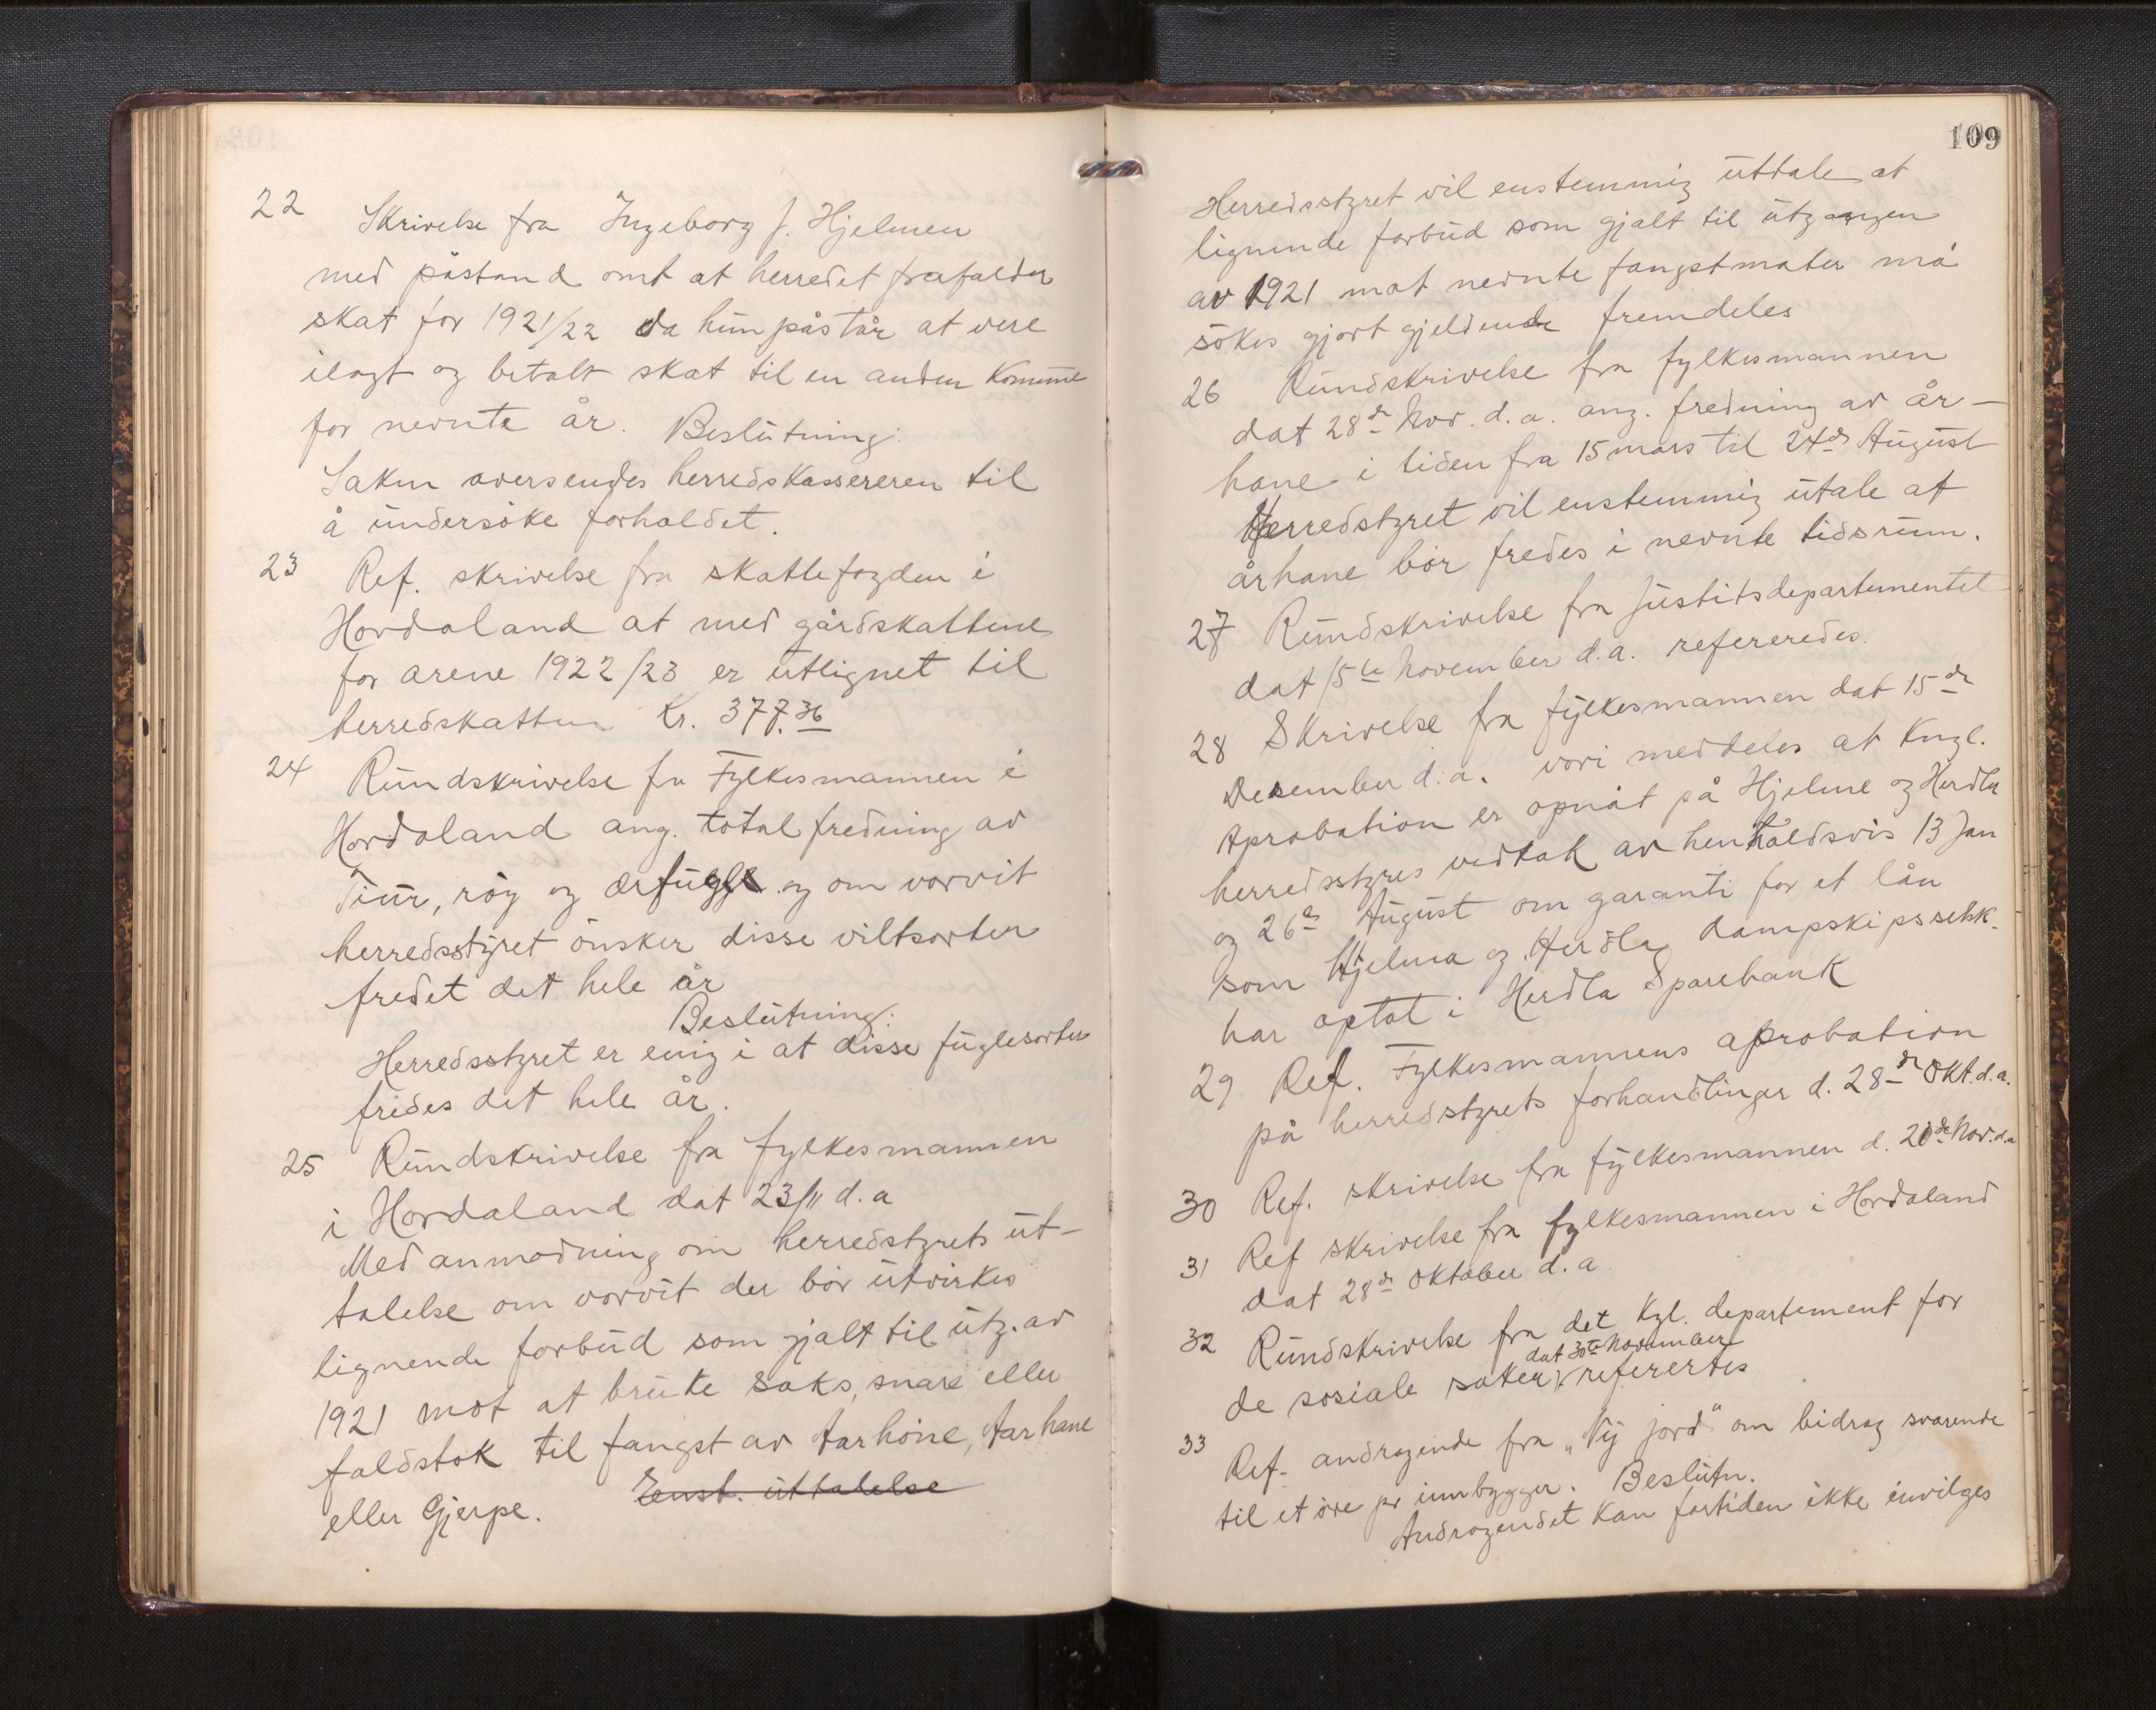 22
Skrivelse fra Ingeborg J. Hjelmen
med påstand omt at herredet frafalder
skat for 1921/22 da hun påstår at vere
ilagt og betalt skat til en anden Komune
for nevnte år. Beslutning:
Saken oversendes herredskassereren til
å undersøke forholdet.
23 Ref. skrivelse fra skattefogden i
Hordaland at med gårdskattene
for arene 1922/23 er utlignet til
herredskatten Kr. 377.36
24 Rundskrivelse fra Fylkesmannen i
Hordaland ang. total fredning av
Tiur, røy og ærfugle og om vorvit
herredsstyret ønsker disse viltsorter
fredet det hele år
Beslutning:
Herredsstyret er enig i at disse fuglesorter
fredes det hele år.
25 Rundskrivelse fra fylkesmannen
i Hordaland dat 23/11 d.a
Med anmodning om herredstyrets ut-
talelse om vorvit der bør utvirkes
lignende forbud som gjalt til utg. av
1921 mot at bruke saks, snare eller
faldstok til fangst av Aarhöne, Aarhane
eller Gjerpe. Enst. uttalelse
109
Herredsstyret vil enstemmig uttale at
lignende forbud som gjalt til utgangen
av 1921 mot nevnte fangstmater må
søkes gjort gjeldende fremdeles
26 Rundskrivelse fra fylkesmannen
dat 28de Nov. d.a. ang. fredning av år-
hane i tiden fra 15 mars til 24de August
Herredstyret vil enstemmig utale at
århane bør fredes i nevnte tidsrum.
27 Rundskrivelse fra Justitsdepartementet
dat 15de November d.a. refereredes.
28 Skrivelse fra fylkesmannen dat 15de
Desember d.a. vori meddeles at Kngl.
Aprobation er opnåt på Hjelme og Herdla
herredsstyres vedtak av henholdsvis 13 Jan
og 26de August om garanti for et lån
som Hjelma og Herdla dampskipsselsk.
har optat i Herdla Sparebank
29 Ref. Fylkesmannens aprobation
på herredstyrets forhandlinger d. 28de Okt. d.a.
30 Ref. skrivelse fra fylkesmannen d. 20de Nov. d.a
31 Ref skrivelse fra fylkesmannen i Hordaland
dat 28de Oktober d.a
32 Rundskrivelse fra det Kgl. departement for
dat 30te November
de sosiale saker referertes
33 Ref. andragende fra „Ny jord" om bidrag svarende
til et øre pr innbygger. Beslutn.
Andragendet kan fortiden ikke invilges